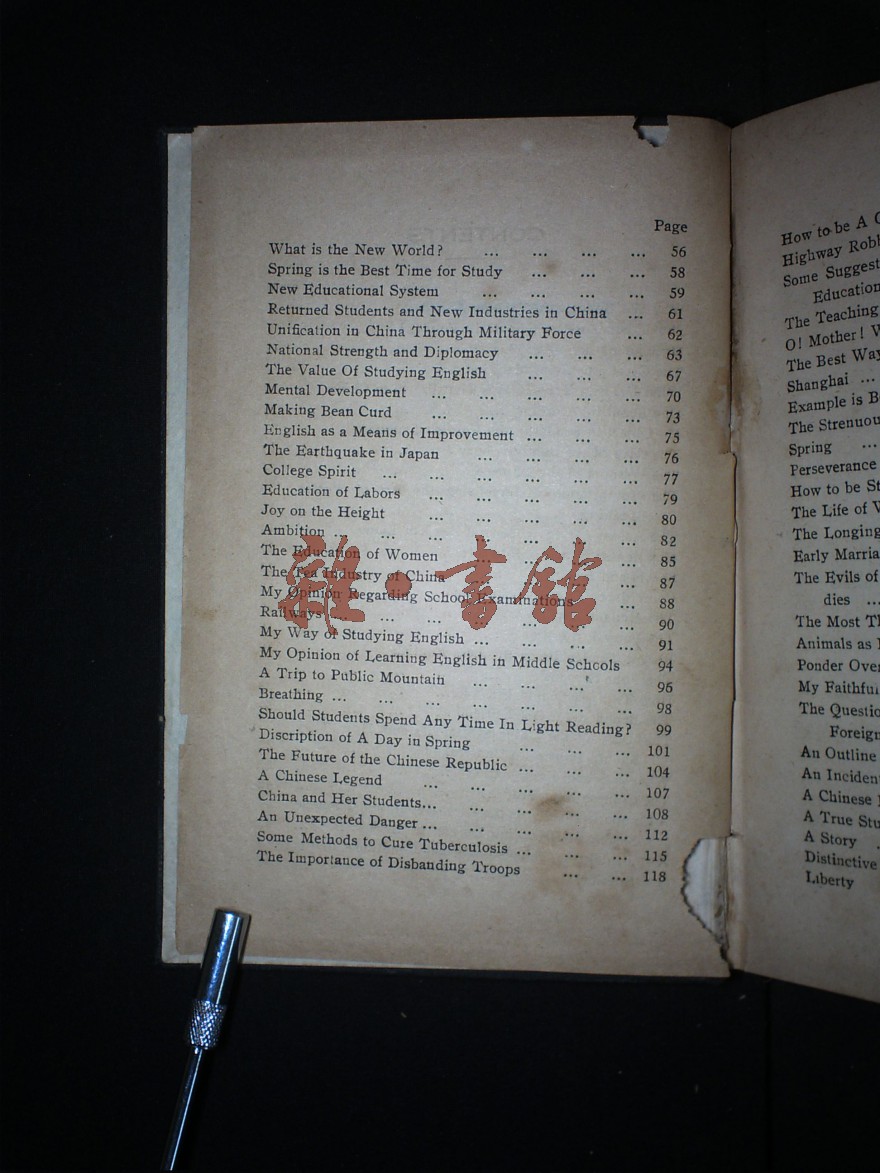 Page
What is the New World? ... ... ... ... 56
Spring is the Best Time for Study ... ... ... 58
New Educational System ... ... ... ... 59
Returned Students and New Industries in China ... 61
Unification in China Through Military Force ... 62
National Strength and Diplomacy ... ... ... 63
The Value Of Studying English ... ... ... 67
Mental Development ... ... ... ... ... 70
Making Bean Curd ... ... ... ... ... 73
English as a Means of Improvement ... ... ... 75
The Earthquake in Japan ... ... ... ... 76
College Spirit ... ... ... ... ... ... 77
Education of Labors ... ... ... ... ... 79
Joy on the Height ... ... ... ... ... 80
Ambition ... ... ... ... ... ... ... 82
The Education of Women ... ... ... ... 85
The Tea Industry of China ... ... ... ... 87
My Opinion Regarding School Examinations ... ... 88
Railways ... ... ... ... ... ... ... 90
My Way of Studying English ... ... ... ... 91
My Opinion of Learning English in Middle Schools 94
A Trip to Public Mountain ... ... ... ... 96
Breathing ... ... ... ... ... ... ... 98
Should Students Spend Any Time In Light Reading? 99
Discription of A Day in Spring ... ... ... 101
The Future of the Chinese Republic ... ... ... 104
A Chinese Legend ... ... ... ... ... 107
China and Her Students... ... ... ... ... 108
An Unexpected Danger ... ... ... ... ... 112
Some Methods to Cure Tuberculosis ... ... ... 115
The Importance of Disbanding Troops ... ... 118
雜·書館
How to be A
Highway
Some
Education
The Teaching
O! Mother!
The Best Way
Shanghai ...
Example is
The
Spring ...
Perseverance
How to be
The Life of
The Longing
Early
The Evils of
dies ...
The Most
Animals as
Ponder
My
The
An Outline
An
A Chinese
A True
A Story
Distinctive
Liberty